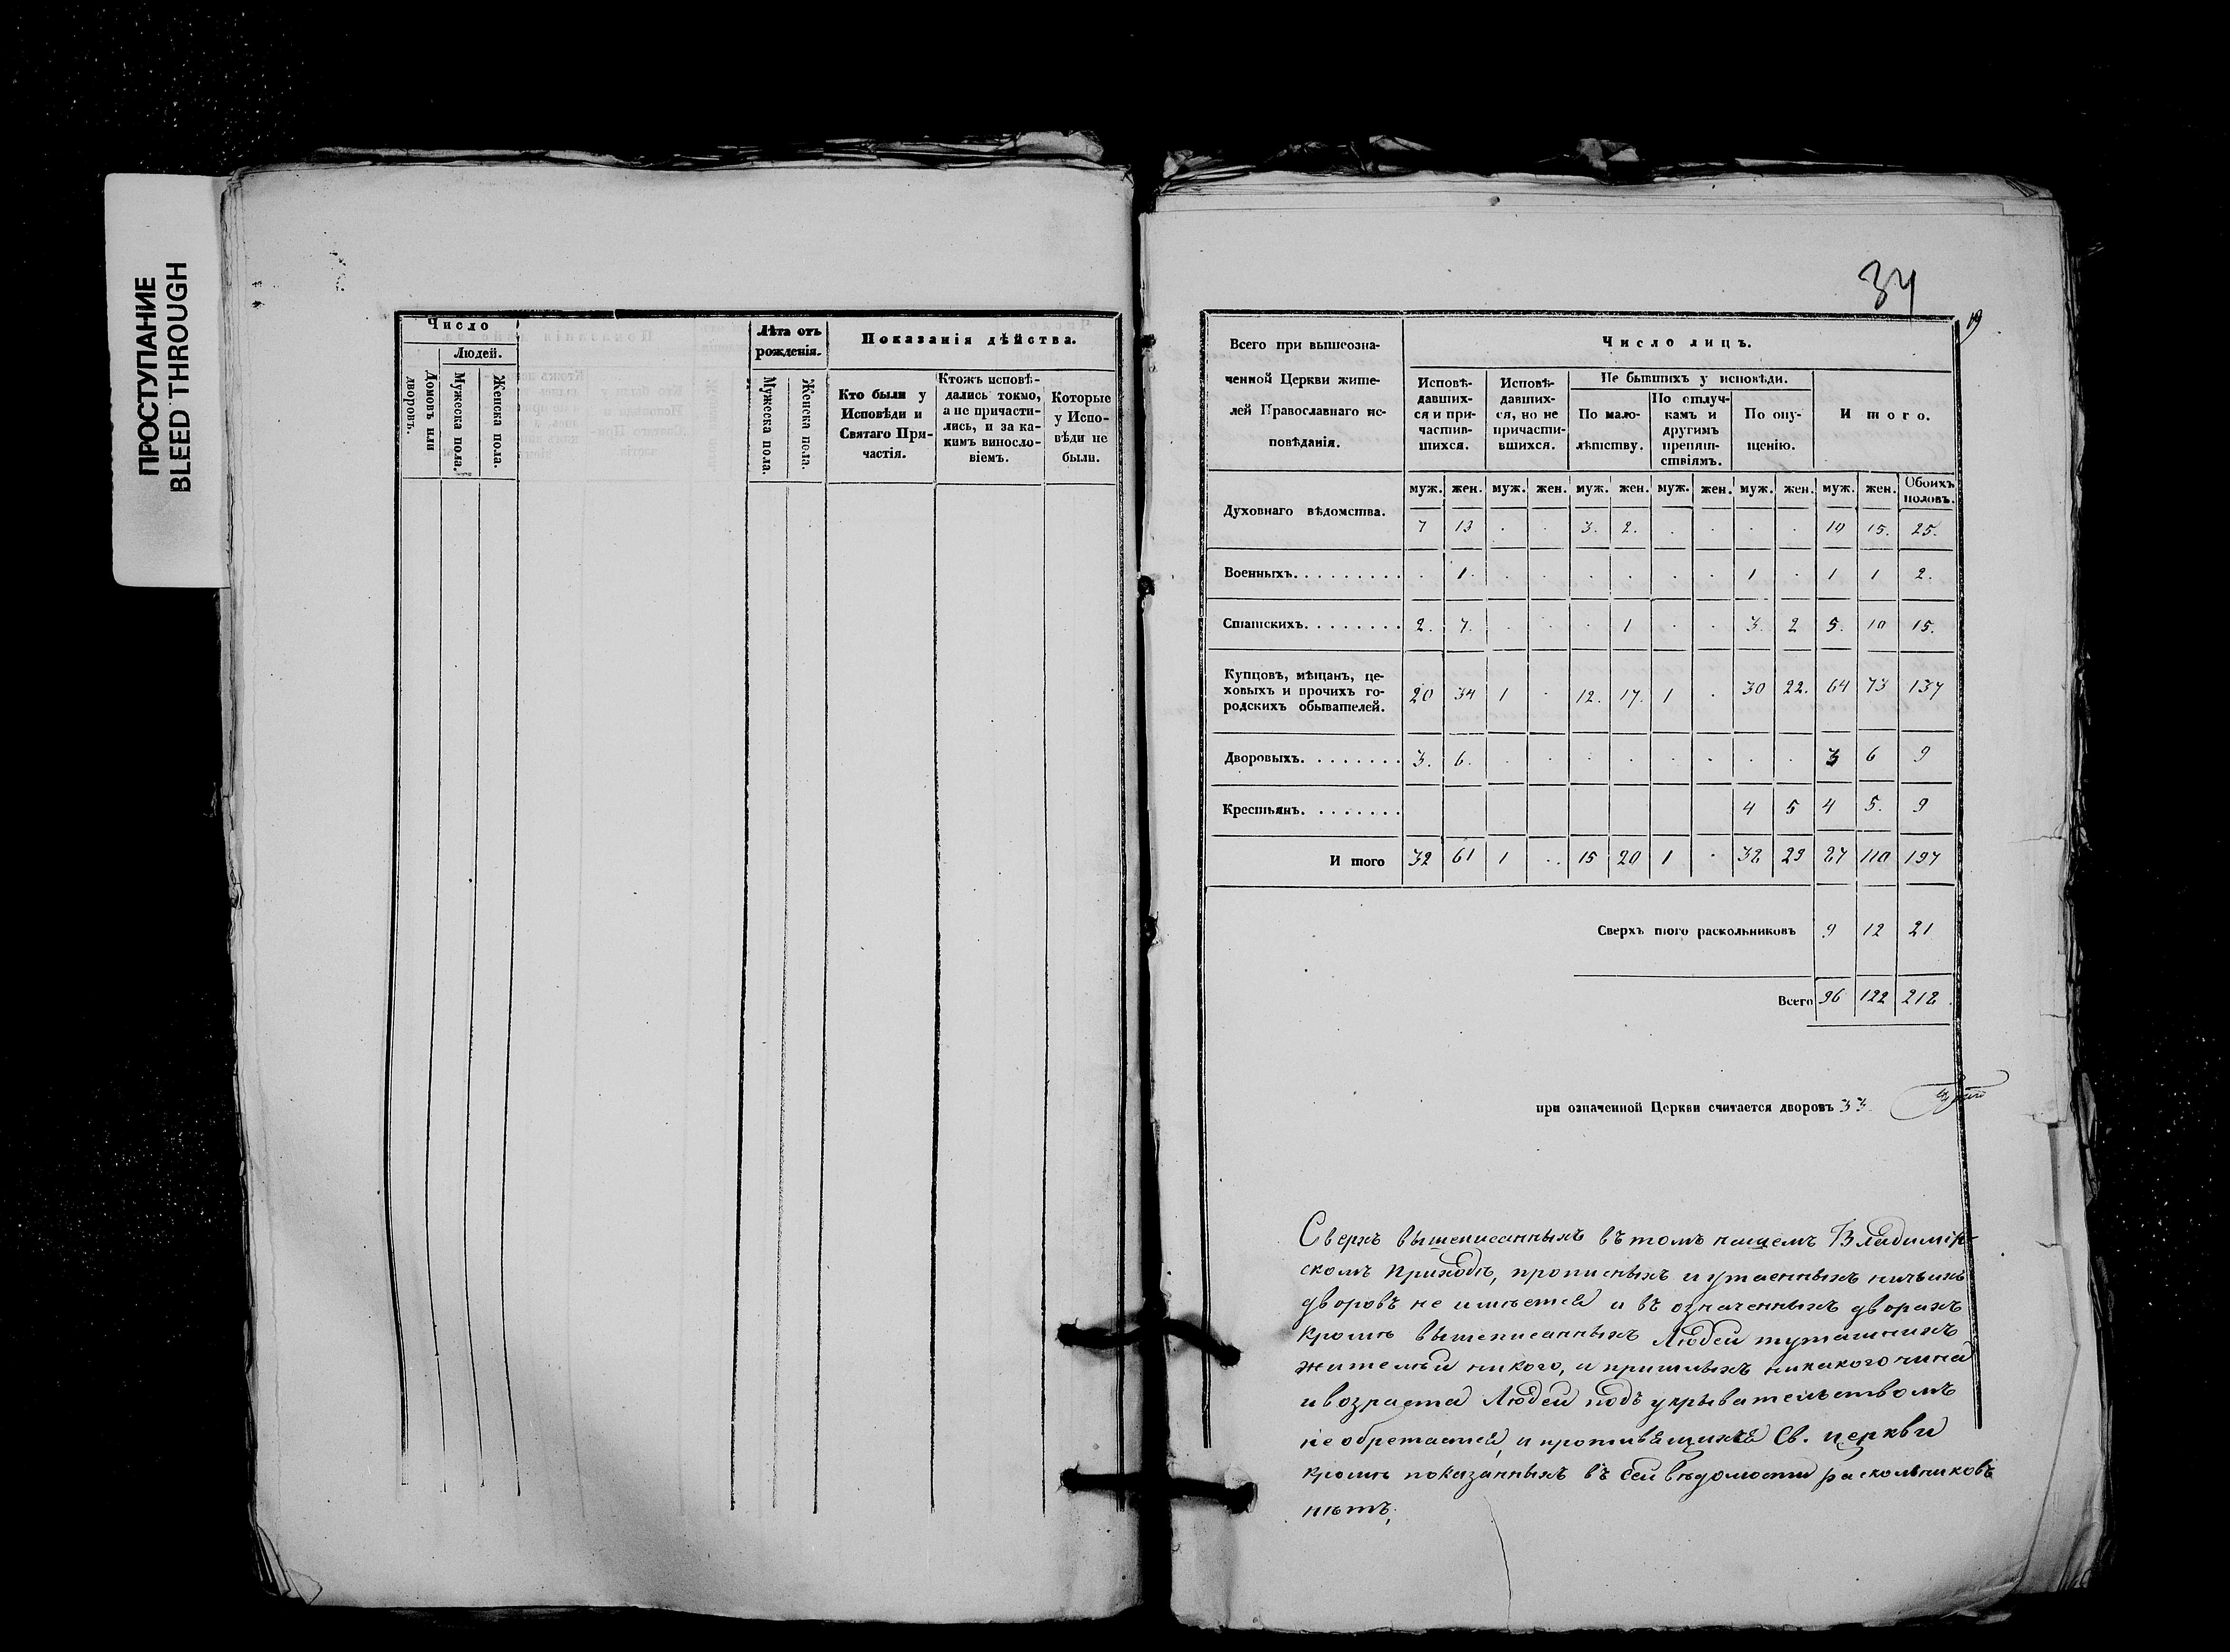 ПРОСТУПАНИЕ
BLEED THROUGH
Число
Людей.
Домовъ или дворовъ.
Мужеска пола.
Женска пола.
Лѣта отъ рожденія.
Мужеска пола.
Женска пола.
Показанія дѣйства.
Кто были у
Исповѣди и
Святаго При-
частія.
Ктожъ исповѣ-
дались токмо,
а не причасти-
лись, и за ка-
кимъ виносло-
віемъ.
Которые
у Испо-
вѣди не
были.
34
19
Всего при вышеозна-
ченной Церкви жите-
лей Православнаго ис-
повѣданія.
Число лицъ.
Исповѣ-
давших-
ся и при-
частив-
шихся.
Исповѣ-
давших-
ся, но не
причасти-
вшихся.
Не бывшихъ у исповѣди.
По мало-
лѣтству.
По отлуч-
камъ и
другимъ
препят-
ствіямъ.
По опу-
щенію.
И того.
муж. жен. муж. жен. муж. жен. муж. жен. муж. жен. муж. жен. Обоихъ половъ.
Духовнаго вѣдомства. 7 13 . . 3. 2. . . . . 10 15. 25.
Военныхъ. . . . . . . . . . 1. . . . . . . 1 . 1 1 2.
Статскихъ. . . . . . . . 2. 7. . . . 1 . . 3. 2 5. 10 15.
Купцовъ, мѣщанъ, це-
ховыхъ и прочихъ го-
родскихъ обывателей.
20 34 1 . 12. 17. 1 . 30 22. 64 73 137
Дворовыхъ. . . . . . . . 3. 6. . . . . . . . . 3 6 9
Крестьянъ. . . . . . . . 4 5 4 5. 9
И того 32 61 1 .. 15 20 1 . 38 29 87 110 197
Сверхъ того раскольниковъ 9 12 21
Всего 96 122 218
при означенной Церкви считается дворовъ 33.
Сверхъ вышеписанныхъ въ томъ нашемъ Владимір-
скомъ приходѣ, прописныхъ и утаенныхъ ничьихъ
дворовъ не имѣется и въ означенныхъ дворахъ
кромѣ вышеписанныхъ Людей тутошнихъ
жителей никого, и пришлыхъ никакого чина
и возраста Людей подъ укрывательствомъ
не обретается, и противящихся Св. церкви
кромѣ показанныхъ въ сей вѣдомости раскольниковъ
нѣтъ.